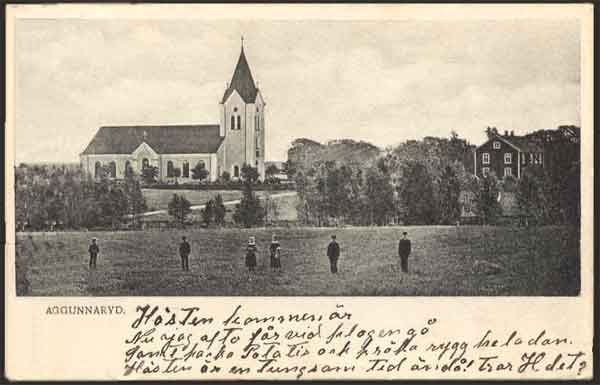 AGGUNNARYD.
Hösten kommen är
Nu jag ofta får vid plogen gå
Samt hacka Potatis och kröka rygg hela dan.
Hösten är en tungsam tid ändå! tror H det?